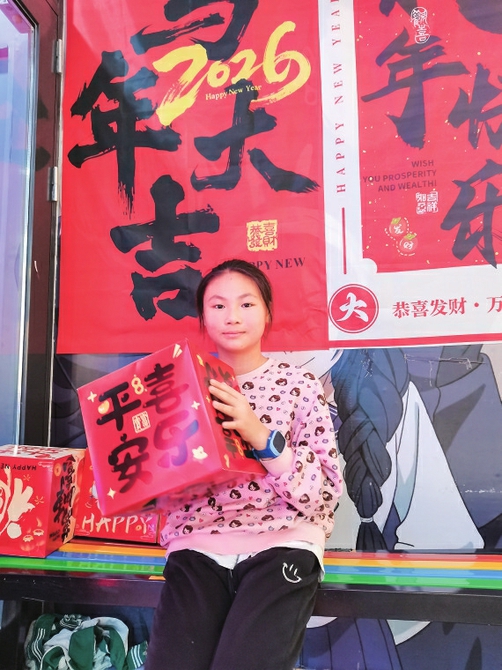 马年大吉
2026
Happy New Year
恭喜
發財
HAPPY NEW
HAPPY NEW YEAR
年快乐
WISH
YOU PROSPERITY
AND WEALTH!
吉祥
如意
大
恭喜发财·万
平安喜乐
HAPPY